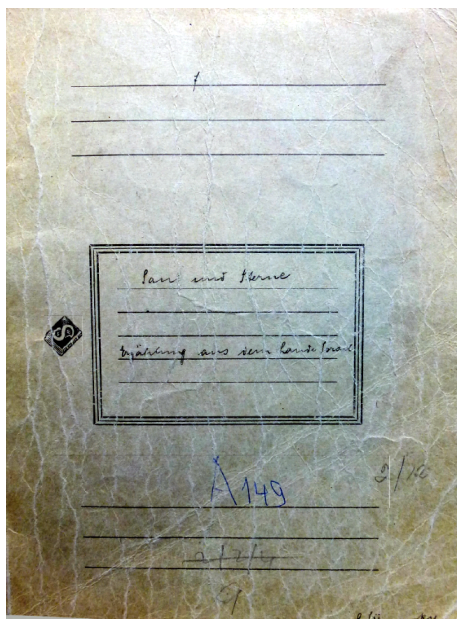 1
Sand und Sterne
Erzählung aus dem Lande Israel
A149
2/10